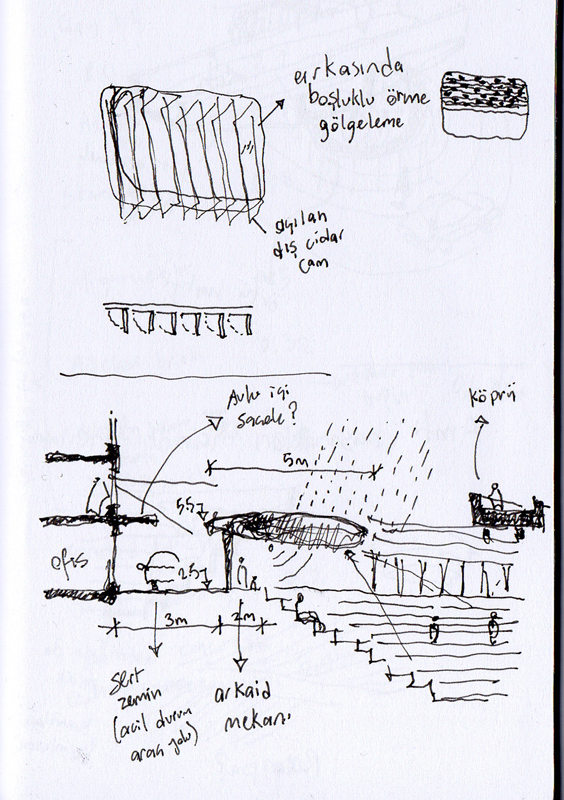 arkasında
boşluklu örme
gölgeleme
açılan
dış cidar
cam
Avlu içi
saçak?
köprü
5m
55
ofis
25
3m
2m
sert
zemin
(acil durum
araç yolu)
arkaid
mekanı